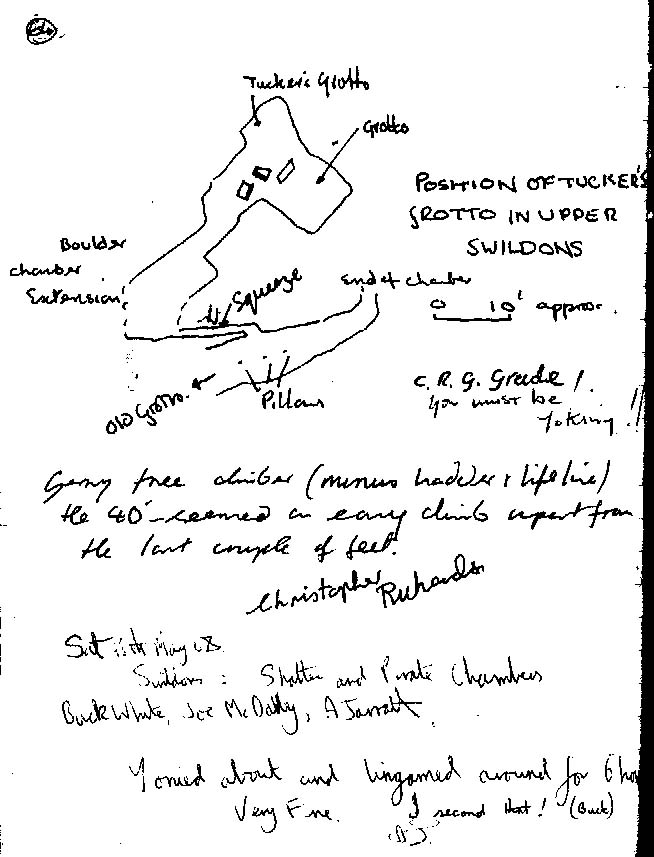 Tucker's Grotto
Grotto
POSITION OF TUCKER'S
GROTTO IN UPPER
SWILDONS
Boulder
chamber
Extension
Squeeze
End of chamber
0 10' approx.
Old Grotto.
Pillars
C. R. G. Grade 1.
You must be
Joking !!
Gerry free climber (minus ladder & lifeline)
the 40' - seemed an easy climb apart from
the last couple of feet.
Christopher Richards
Sat May 68
Swildons : Shatter and Pirate Chambers
Buck White, Joe McDally, A Jarratt
Yonied about and lingamed around for 6
Very Fine. I second that! (Buck)